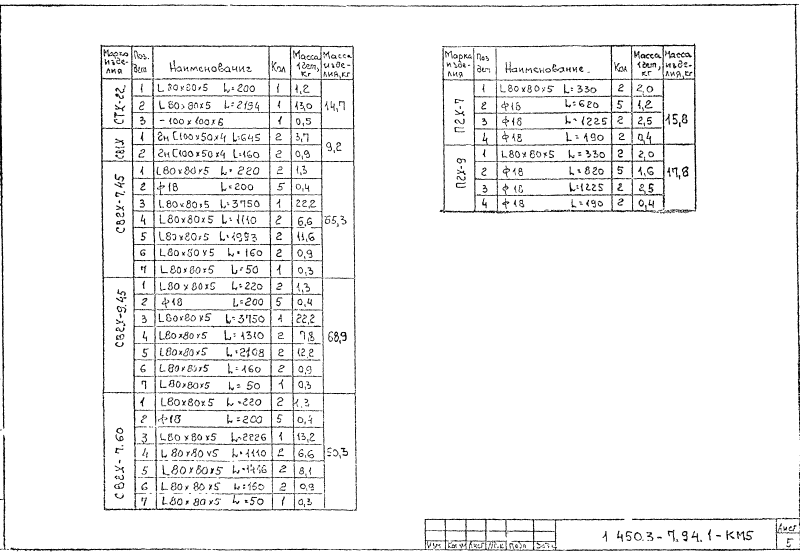 Марка изделия | Поз. дет. | Наименование | Кол | Масса 1 дет, кг | Масса изделия, кг
СТХ-22 | 1 | L 80x80x5 L=200 | 1 | 1,2 | 14,7
2 | L 80x80x5 L=2194 | 1 | 13,0
3 | -100x100x6 | 1 | 0,5
СВ1Х | 1 | 2н [100x50x4 L=645 | 2 | 3,7 | 9,2
2 | 2н [100x50x4 L=160 | 2 | 0,9
СВ2Х-7.45 | 1 | L80x80x5 L=220 | 2 | 1,3 | 65,3
2 | ф18 L=200 | 5 | 0,4
3 | L80x80x5 L=3750 | 1 | 22,2
4 | L80x80x5 L=1110 | 2 | 6,6
5 | L80x80x5 L=1993 | 2 | 11,6
6 | L80x80x5 L=160 | 2 | 0,9
7 | L80x80x5 L=50 | 1 | 0,3
СВ2Х-9.45 | 1 | L80x80x5 L=220 | 2 | 1,3 | 68,9
2 | ф18 L=200 | 5 | 0,4
3 | L80x80x5 L=3750 | 1 | 22,2
4 | L80x80x5 L=1310 | 2 | 7,8
5 | L80x80x5 L=2108 | 2 | 12,2
6 | L80x80x5 L=160 | 2 | 0,9
7 | L80x80x5 L=50 | 1 | 0,3
СВ2Х-7.60 | 1 | L80x80x5 L=220 | 2 | 1,3 | 50,3
2 | ф18 L=200 | 5 | 0,4
3 | L80x80x5 L=2226 | 1 | 13,2
4 | L80x80x5 L=1110 | 2 | 6,6
5 | L80x80x5 | 2 | 8,1
6 | L80x80x5 L=160 | 2 | 0,9
7 | L80x80x5 L=50 | 1 | 0,3
Марка изделия | Поз дет | Наименование | Кол | Масса 1 дет, кг | Масса изделия, кг
П2Х-7 | 1 | L80x80x5 L=330 | 2 | 2,0 | 15,8
2 | ф18 L=620 | 5 | 1,2
3 | ф18 L=1225 | 2 | 2,5
4 | ф18 L=190 | 2 | 0,4
П2Х-9 | 1 | L80x80x5 L=330 | 2 | 2,0 | 17,8
2 | ф18 L=820 | 5 | 1,6
3 | ф18 L=1225 | 2 | 2,5
4 | ф18 L=190 | 2 | 0,4
1.450.3-7.94.1-КМ5
Лист
5